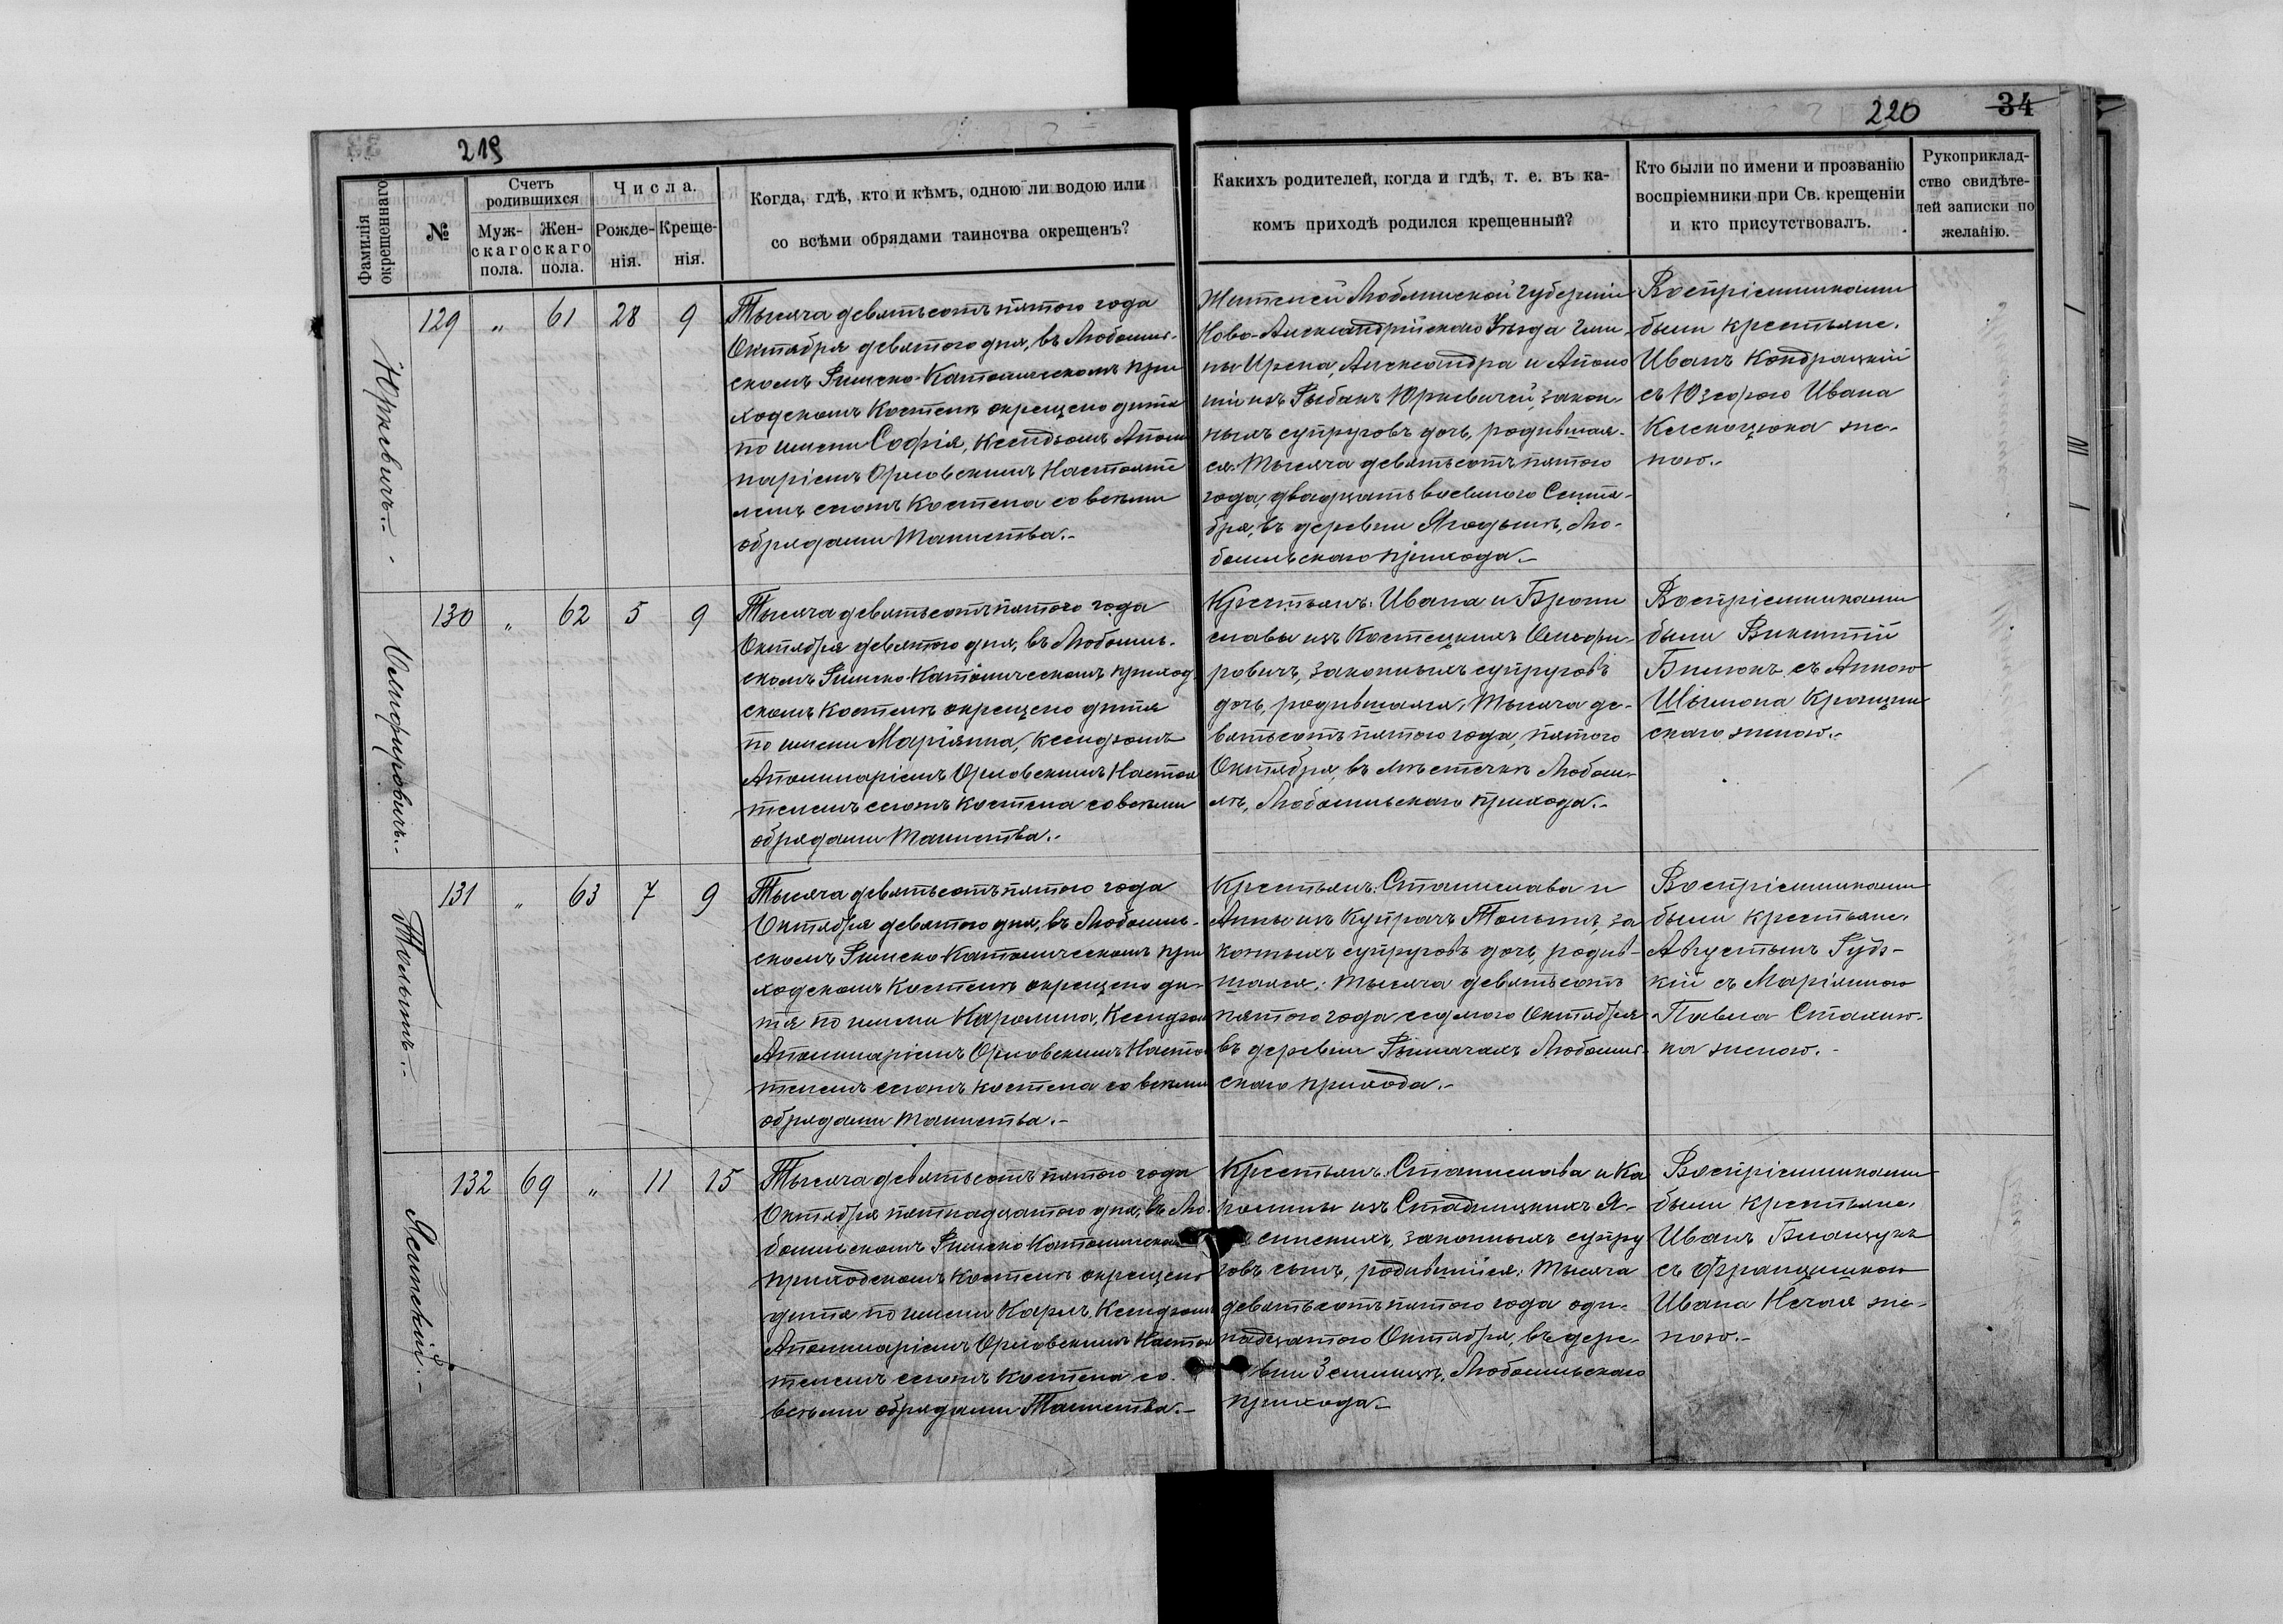 219
220 34
Фамилія окрещеннаго
№
Счетъ родившихся
Муж-
скаго
пола.
Жен-
скаго
пола.
Числа.
Рожде-
нія.
Креще-
нія.
Когда, гдѣ, кто и кѣмъ, одною ли водою или
со всѣми обрядами таинства окрещенъ?
Какихъ родителей, когда и гдѣ, т. е. въ ка-
комъ приходѣ родился крещенный?
Кто были по имени и прозванію
воспріемники при Св. крещеніи
и кто присутствовалъ.
Рукоприклад-
ство свидѣте-
лей записки по
желанію.
Юркевичъ.
129 " 61 28 9
Тысяча девятьсотъ пятого года
Октября девятого дня, въ Любомль-
скомъ Римско-Католическомъ при
ходскомъ Костелѣ окрещено дитя
по имени Софія, Ксендзомъ Аполи
наріемъ Орловскимъ Настояте
лемъ сего Костела со всѣми
обрядами Таинства.-
Жителей Люблинской Губерніи
Ново-Александрійскаго Уѣзда Гми-
ны Ирена, Александра и Аполо
ніи изъ Рыбакъ Юркевичей, закон-
ныхъ супруговъ дочь, родившая-
ся: Тысяча девятьсотъ пятого
года, двадцать восьмого Сентя-
бря, въ деревни Ягодынѣ, Лю-
бомльскаго прихода.-
Воспріемниками
были крестьяне.
Иванъ Кондрацкій
съ Юзефою Ивана
же-
ною.-
130 " 62 5 9
Тысяча девятьсотъ пятого года
Октября девятого дня, въ Любомль-
скомъ Римско-Католическомъ приход
скомъ Костелѣ окрещено дитя
по имени Маріянна, Ксендзомъ
Аполинаріемъ Орловскимъ Настоя
телемъ сего Костела со всѣми
обрядами Таинства.-
Крестьянъ: Ивана и Брони
славы изъ Костецкихъ
ровичъ, законныхъ супруговъ
дочь, родившаяся: Тысяча де-
вятьсотъ пятого года, пятого
Октября, въ мѣстечкѣ Любом-
лѣ, Любомльскаго прихода.-
Воспріемниками
были Викентій
съ Анною
Шымона
скаго женою.-
Тольтинъ.
131 " 63 7 9
Тысяча девятьсотъ пятого года
Октября девятого дня, въ Любомль-
скомъ Римско-Католическомъ при
ходскомъ Костелѣ окрещено ди-
тя по имени Каролина, Ксендзом
Аполинаріемъ Орловскимъ Настоя
телемъ сего Костела со всѣми
обрядами Таинства.-
Крестьянъ: Станислава и
Анны изъ Купрачъ за
конныхъ супруговъ дочь, родив-
шаяся: Тысяча девятьсотъ
пятого года седьмого Октября
въ деревни Рымачахъ Любомль-
скаго прихода.-
Воспріемниками
были крестьяне.
Августынъ Рудз-
кій съ Маріянною
Павла
на женою.-
Ясинскій.-
132 69 " 11 15
Тысяча девятьсотъ пятого года
Октября пятнадцатого дня, въ Лю-
бомльскомъ Римско Католическом
приходскомъ Костелѣ окрещено
дитя по имени Карлъ, Ксендзомъ
Аполинаріемъ Орловскимъ Настоя
телемъ сего Костела со
всѣми обрядами Таинства.-
Крестьянъ: Станислава и Ка
ролины изъ Стадницкихъ Я-
синскихъ, законныхъ супру
говъ сынъ, родившійся: Тысяча
девятьсотъ пятого года оди-
надцатого Октября, въ дере-
вни Земицѣ, Любомльскаго
прихода.-
Воспріемниками
были крестьяне.
Иванъ Бланцукъ
съ Францишкою
Ивана Нечая же-
ною.-